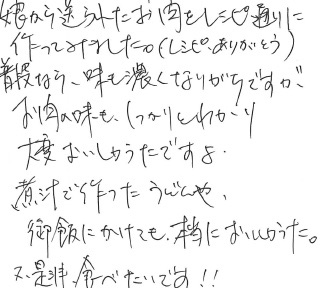 娘から送られたお肉をレシピ通りに
作ってみました。(レシピ、ありがとう)
普段なら、味も濃くなりがちですが、
お肉の味も、しっかりとわかり
大変おいしかったですよ。
煮汁で作ったうどんや、
御飯にかけても、本当においしかった。
又是非、食べたいです!!